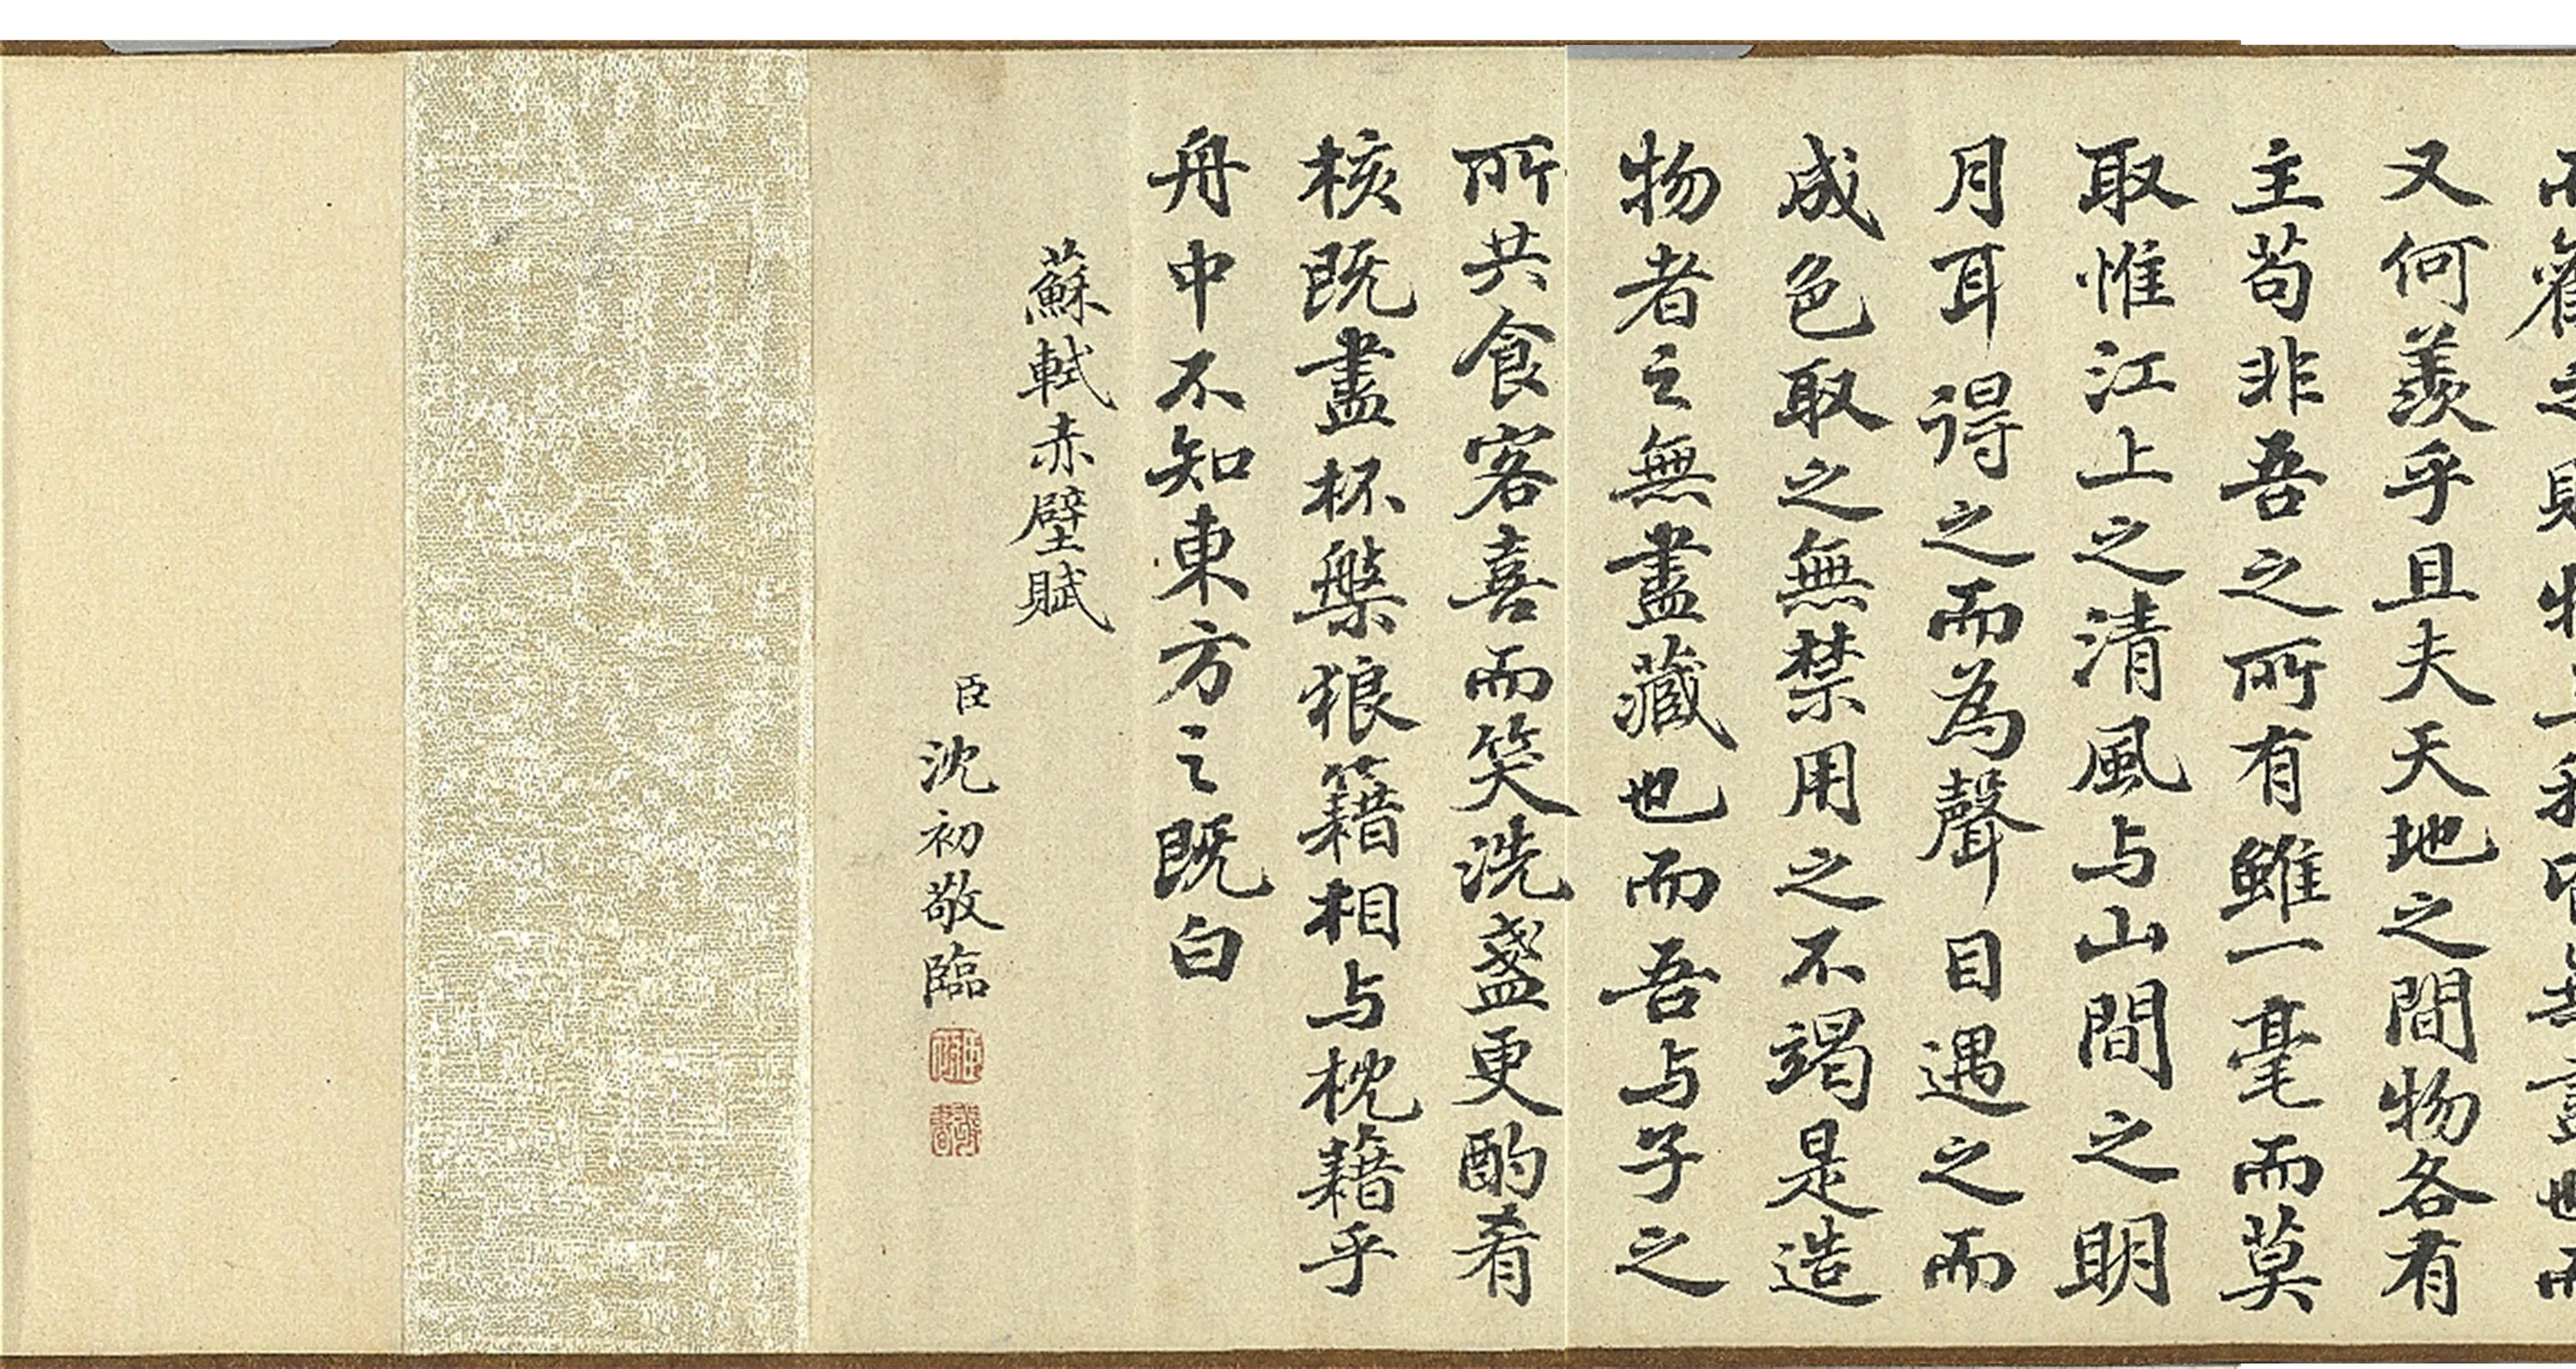 又何羨乎且夫天地之間物各有
主苟非吾之所有雖一毫而莫
取惟江上之清風与山間之明
月耳得之而為聲目遇之而
成色取之無禁用之不竭是造
物者之無盡藏也而吾与子之
所共食客喜而笑洗盞更酌肴
核既盡杯槃狼籍相与枕藉乎
舟中不知東方之既白
蘇軾赤壁賦
臣沈初敬臨